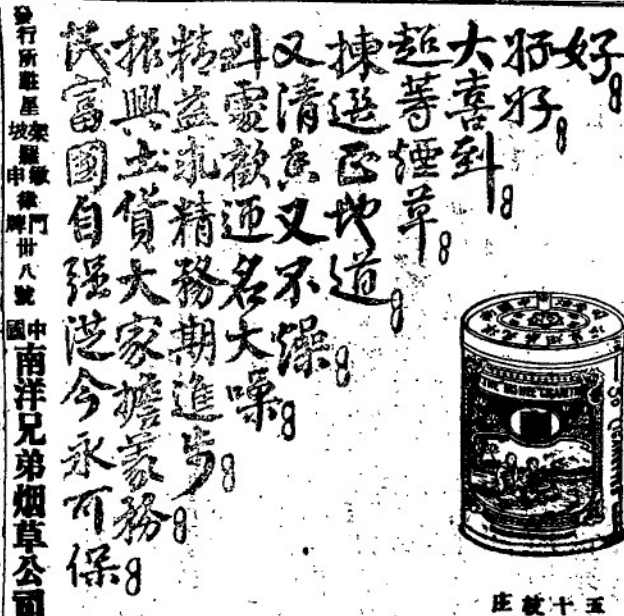 好
好好
大喜到
超等煙草
揀選正地道
又清香又不燥
到處歡迎名大噪
精益求精務期進步
振興土貨大家擔義務
民富國自強從今永可保
發行所駐星架坡羅敏申律門牌卅八號
中國南洋兄弟烟草公司
五十枚庄